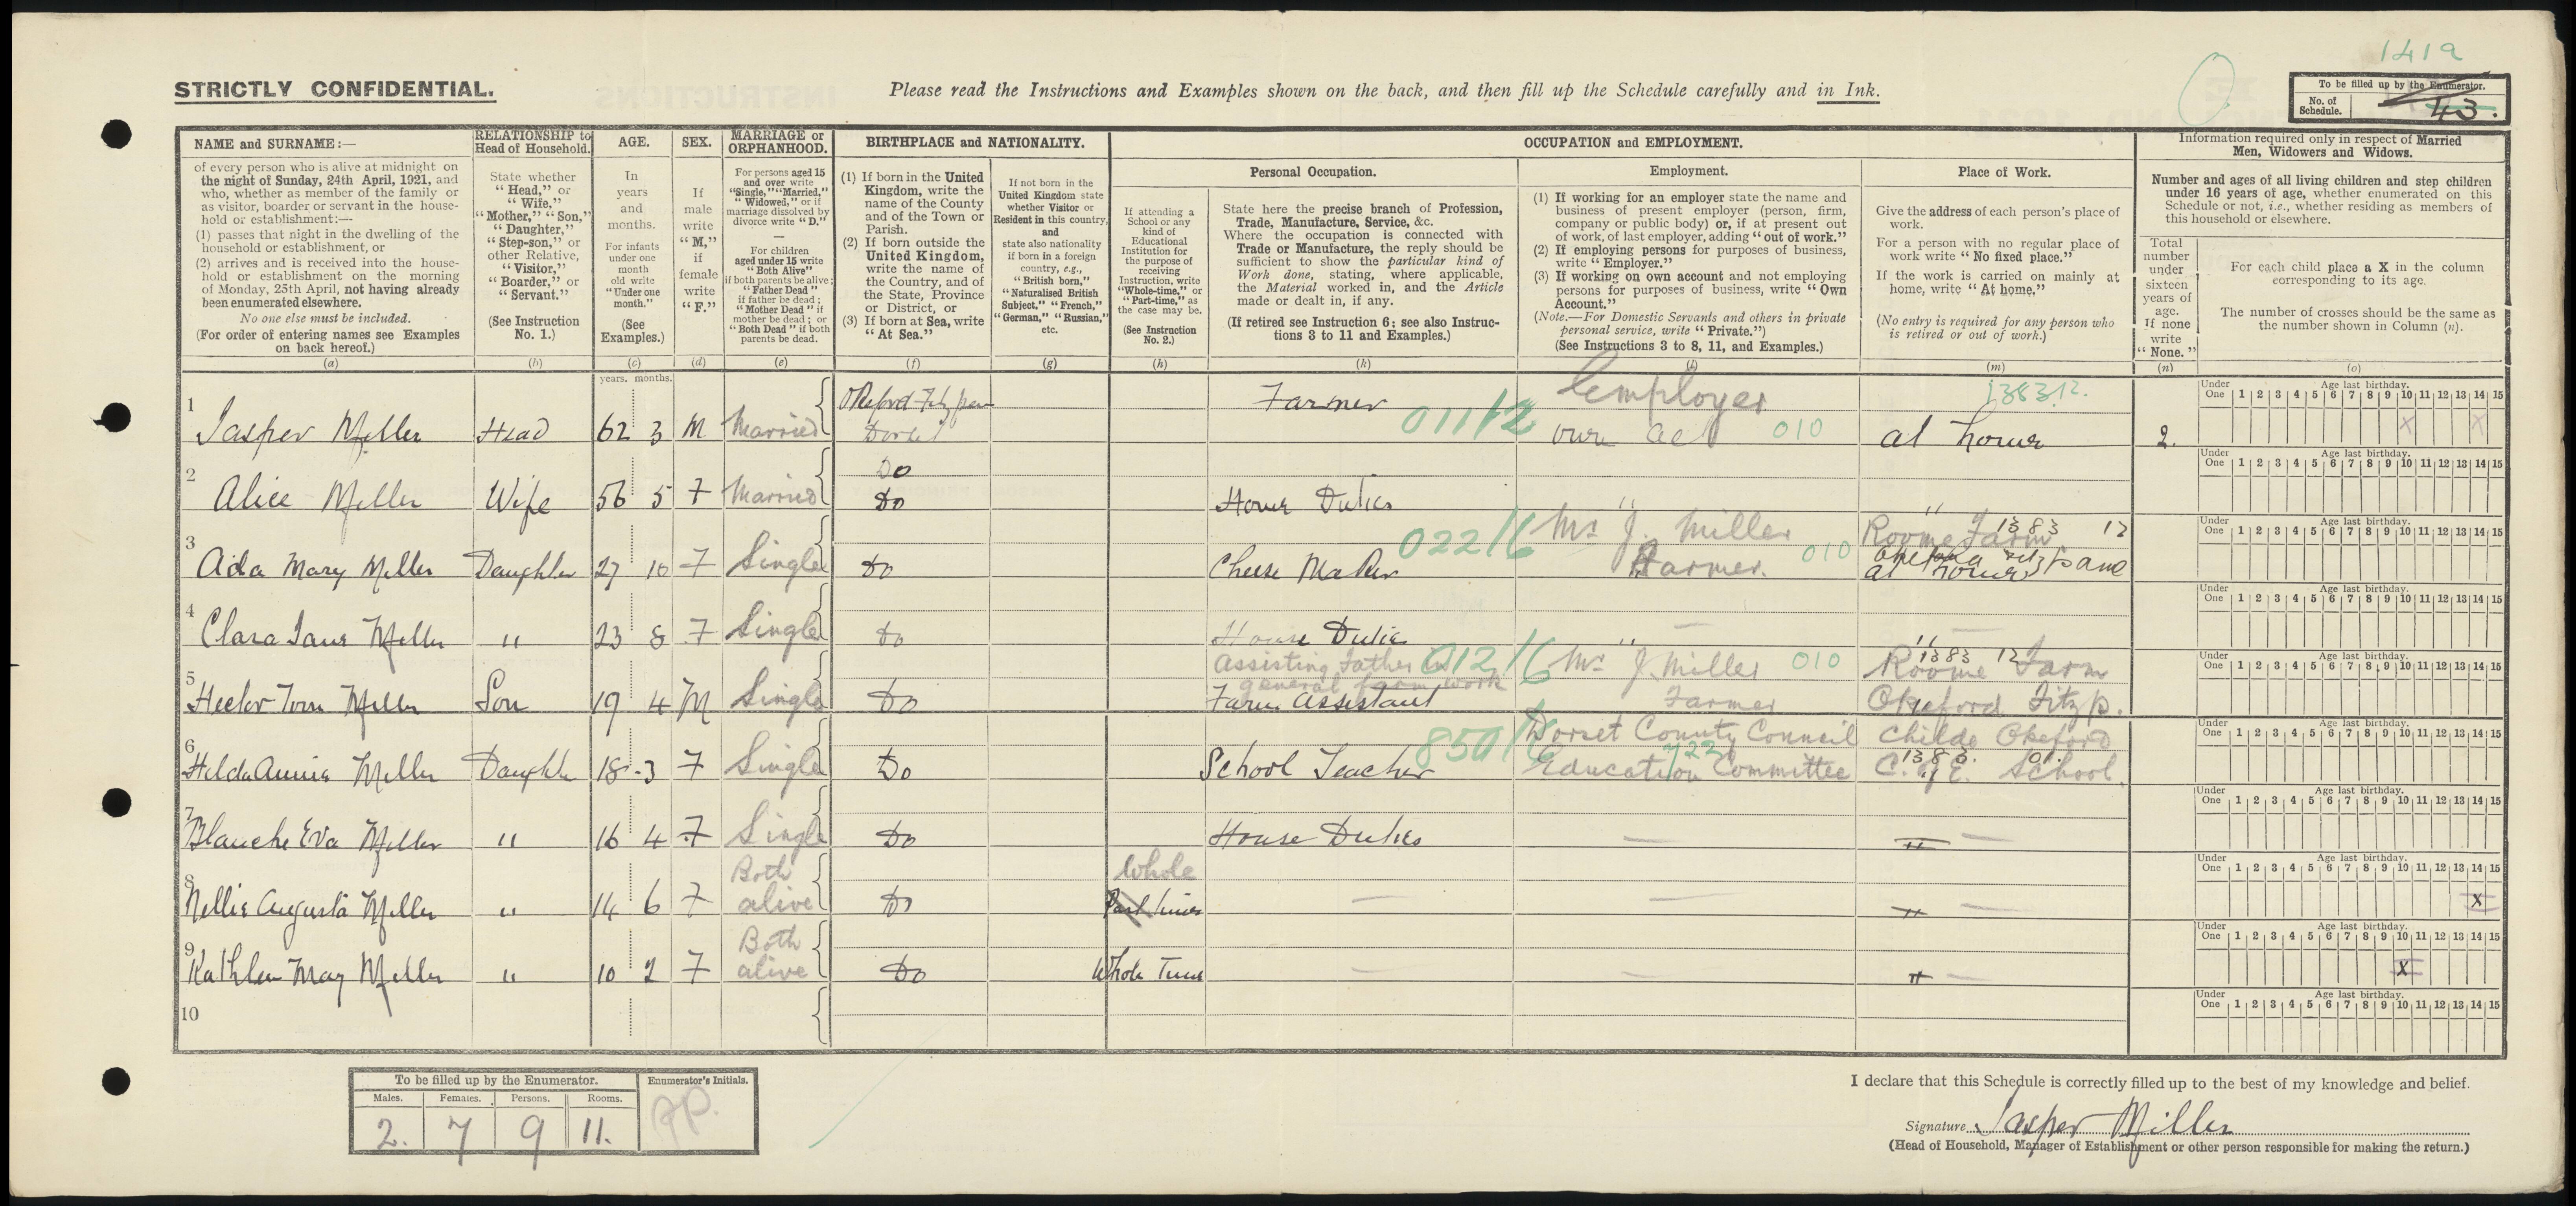 1419
STRICTLY CONFIDENTIAL.
Please read the Instructions and Examples shown on the back, and then fill up the Schedule carefully and in Ink.
To be filled up by the Enumerator.
No. of Schedule.
43.
NAME and SURNAME:—
of every person who is alive at midnight on
the night of Sunday, 24th April, 1921, and
who, whether as member of the family or
as visitor, boarder or servant in the house-
hold or establishment:—
(1) passes that night in the dwelling of the
household or establishment, or
(2) arrives and is received into the house-
hold or establishment on the morning
of Monday, 25th April, not having already
been enumerated elsewhere.
No one else must be included.
(For order of entering names see Examples
on back hereof.)
(a)
RELATIONSHIP to
Head of Household.
State whether
"Head," or
"Wife,"
"Mother," "Son,"
"Daughter,"
"Step-son," or
other Relative,
"Visitor,"
"Boarder," or
"Servant."
(See Instruction
No. 1.)
(b)
AGE.
In
years
and
months.
For infants
under one
month
old write
"Under one
month."
(See
Examples.)
(c)
SEX.
If
male
write
"M,"
if
female
write
"F."
(d)
MARRIAGE or
ORPHANHOOD.
For persons aged 15
and over write
"Single," "Married,"
"Widowed," or if
marriage dissolved by
divorce write "D."
—
For children
aged under 15 write
"Both Alive"
if both parents be alive;
"Father Dead"
if father be dead;
"Mother Dead" if
mother be dead; or
"Both Dead" if both
parents be dead.
(e)
BIRTHPLACE and NATIONALITY.
(1) If born in the United
Kingdom, write the
name of the County
and of the Town or
Parish.
(2) If born outside the
United Kingdom,
write the name of
the Country, and of
the State, Province
or District, or
(3) If born at Sea, write
"At Sea."
(f)
If not born in the
United Kingdom state
whether Visitor or
Resident in this country,
and
state also nationality
if born in a foreign
country, e.g.,
"British born,"
"Naturalised British
Subject," "French,"
"German," "Russian,"
etc.
(g)
OCCUPATION and EMPLOYMENT.
If attending a
School or any
kind of
Educational
Institution for
the purpose of
receiving
Instruction, write
"Whole-time," or
"Part-time," as
the case may be.
(See Instruction
No. 2.)
(h)
Personal Occupation.
State here the precise branch of Profession,
Trade, Manufacture, Service, &c.
Where the occupation is connected with
Trade or Manufacture, the reply should be
sufficient to show the particular kind of
Work done, stating, where applicable,
the Material worked in, and the Article
made or dealt in, if any.
(If retired see Instruction 6; see also Instruc-
tions 3 to 11 and Examples.)
(k)
Employment.
(1) If working for an employer state the name and
business of present employer (person, firm,
company or public body) or, if at present out
of work, of last employer, adding "out of work."
(2) If employing persons for purposes of business,
write "Employer."
(3) If working on own account and not employing
persons for purposes of business, write "Own
Account."
(Note.—For Domestic Servants and others in private
personal service, write "Private.")
(See Instructions 3 to 8, 11, and Examples.)
(l)
Place of Work.
Give the address of each person's place of
work.
For a person with no regular place of
work write "No fixed place."
If the work is carried on mainly at
home, write "At home."
(No entry is required for any person who
is retired or out of work.)
(m)
Information required only in respect of Married
Men, Widowers and Widows.
Number and ages of all living children and step children
under 16 years of age, whether enumerated on this
Schedule or not, i.e., whether residing as members of
this household or elsewhere.
Total
number
under
sixteen
years of
age.
If none
write
"None."
(n)
For each child place a X in the column
corresponding to its age.
The number of crosses should be the same as
the number shown in Column (n).
(o)
years. months.
Under One Age last birthday. 1 2 3 4 5 6 7 8 9 10 11 12 13 14 15
1 Jasper Miller Head 62 3 M Married Okeford Fitzpaine Dorset Farmer 011/2 Employer own ac 010 at home 1383.12. 2. X X
Under One Age last birthday. 1 2 3 4 5 6 7 8 9 10 11 12 13 14 15
2 Alice Miller Wife 56 5 F Married Do Do Home Duties " "
Under One Age last birthday. 1 2 3 4 5 6 7 8 9 10 11 12 13 14 15
3 Ada Mary Miller Daughter 27 10 F Single Do Cheese Maker 022/6 Mr J. Miller Farmer. 010 Roome Farm 1383 12 at home
Under One Age last birthday. 1 2 3 4 5 6 7 8 9 10 11 12 13 14 15
4 Clara Jane Miller " 23 8 F Single Do House Duties " — " —
Under One Age last birthday. 1 2 3 4 5 6 7 8 9 10 11 12 13 14 15
5 Hector Tom Miller Son 19 4 M Single Do Assisting Father in general farm work Farm Assistant 012/6 Mr J. Miller Farmer 010 1383 12 Roome Farm Okeford Fitzp.
Under One Age last birthday. 1 2 3 4 5 6 7 8 9 10 11 12 13 14 15
6 Hilda Annie Miller Daughter 18 3 F Single Do School Teacher 850/6 Dorset County Council Education Committee 723 Childe Okeford C. of E. School. 1383. 01.
Under One Age last birthday. 1 2 3 4 5 6 7 8 9 10 11 12 13 14 15
7 Blanche Eva Miller " 16 4 F Single Do House Duties — " —
Under One Age last birthday. 1 2 3 4 5 6 7 8 9 10 11 12 13 14 15
8 Nellie Augusta Miller " 14 6 F Both alive Do Whole Part time — — " — X
Under One Age last birthday. 1 2 3 4 5 6 7 8 9 10 11 12 13 14 15
9 Kathleen May Miller " 10 2 F Both alive Do Whole Time — — " — X
Under One Age last birthday. 1 2 3 4 5 6 7 8 9 10 11 12 13 14 15
10
To be filled up by the Enumerator.
Males. Females. Persons. Rooms.
2. 7 9 11.
Enumerator's Initials.
I declare that this Schedule is correctly filled up to the best of my knowledge and belief.
Signature Jasper Miller
(Head of Household, Manager of Establishment or other person responsible for making the return.)